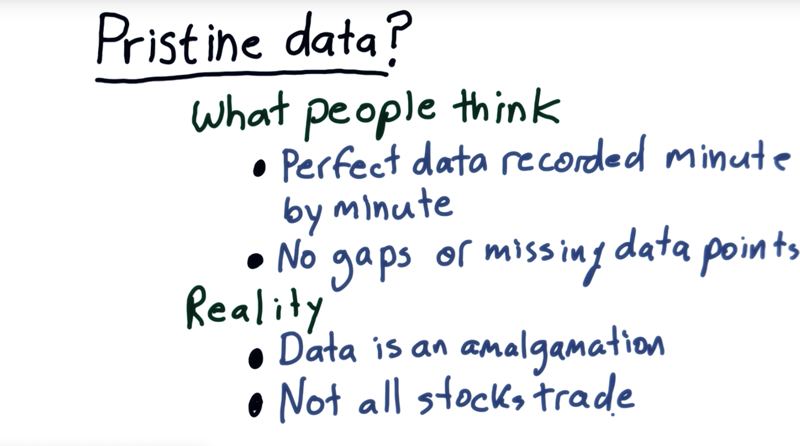 Pristine data?
What people think
• Perfect data recorded minute
by minute
• No gaps or missing data points
Reality
• Data is an amalgamation
• Not all stocks trade